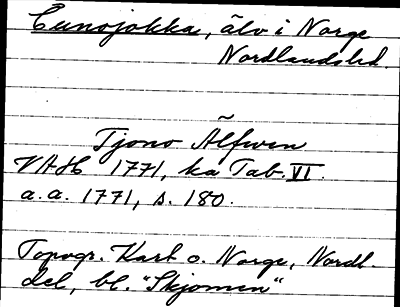 Cunojokka, älv i Norge
Nordlandsbd.
Tjono Älfwen
VAH 1771, ka Tab. VI.
a. a. 1771, s. 180.
Topogr. Kart o. Norge, Nordl.
del, bl. "Skjomen"